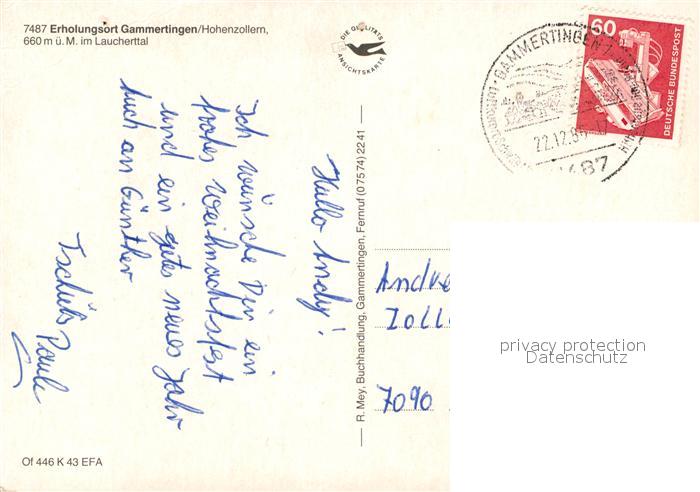 7487 Erholungsort Gammertingen/Hohenzollern,
660 m ü. M. im Laucherttal
DIE QUALITÄTS
ANSICHTSKARTE
Hallo Andy!
Ich wünsche Dir ein
frohes Weihnachtsfest
und ein gutes neues Jahr
auch an Günther
Tschüß Paule
R. Mey, Buchhandlung, Gammertingen, Fernruf (0 75 74) 22 41
Of 446 K 43 EFA
GAMMERTINGEN
22.12.86
7487
60
DEUTSCHE BUNDESPOST
Andre
Zoll
7090
privacy protection
Datenschutz